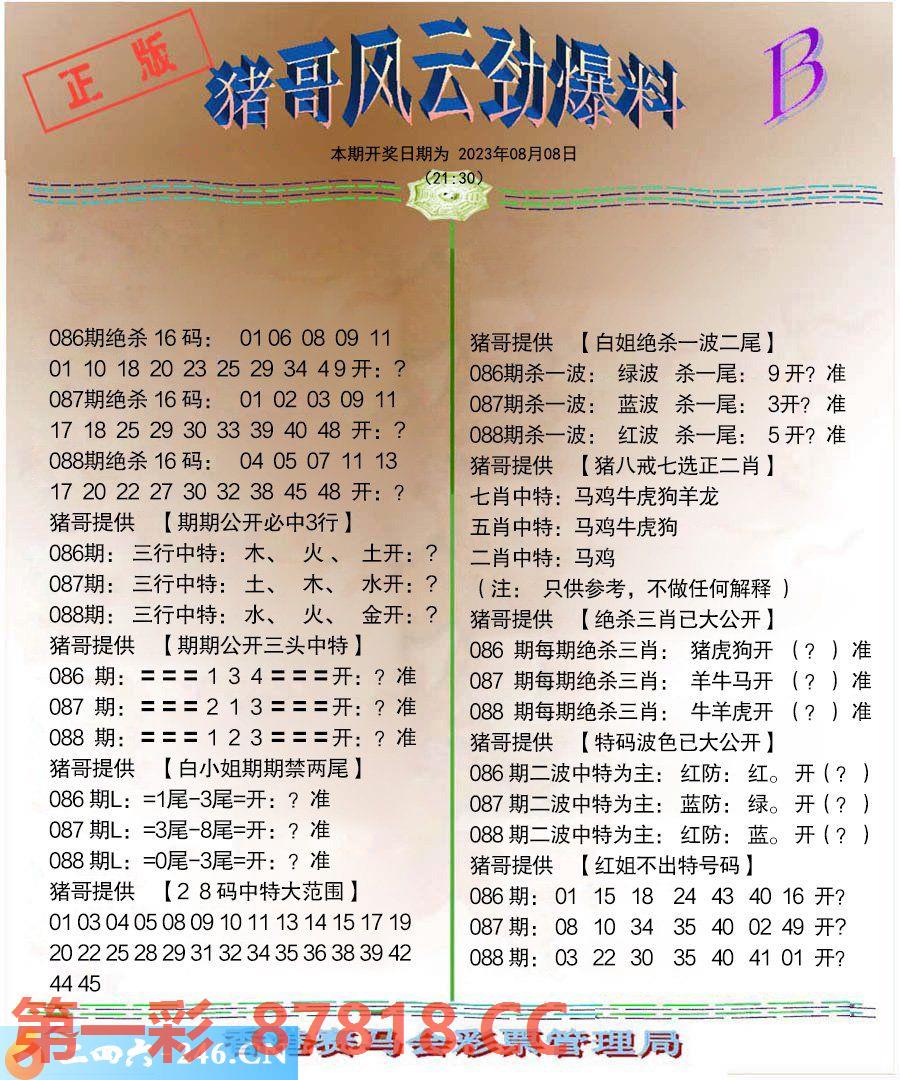 正版
猪哥风云劲爆料
B
本期开奖日期为 2023年08月08日
(21:30)
086期绝杀16码: 01 06 08 09 11
01 10 18 20 23 25 29 34 49 开:?
087期绝杀16码: 01 02 03 09 11
17 18 25 29 30 33 39 40 48 开:?
088期绝杀16码: 04 05 07 11 13
17 20 22 27 30 32 38 45 48 开:?
猪哥提供 【期期公开必中3行】
086期: 三行中特: 木、 火、 土开:?
087期: 三行中特: 土、 木、 水开:?
088期: 三行中特: 水、 火、 金开:?
猪哥提供 【期期公开三头中特】
086 期: 〓〓〓 1 3 4 〓〓〓开:? 准
087 期: 〓〓〓 2 1 3 〓〓〓开:? 准
088 期: 〓〓〓 1 2 3 〓〓〓开:? 准
猪哥提供 【白小姐期期禁两尾】
086 期L: =1尾-3尾=开:? 准
087 期L: =3尾-8尾=开:? 准
088 期L: =0尾-3尾=开:? 准
猪哥提供 【28码中特大范围】
01 03 04 05 08 09 10 11 13 14 15 17 19
20 22 25 28 29 31 32 34 35 36 38 39 42
44 45
猪哥提供 【白姐绝杀一波二尾】
086期杀一波: 绿波 杀一尾: 9开? 准
087期杀一波: 蓝波 杀一尾: 3开? 准
088期杀一波: 红波 杀一尾: 5开? 准
猪哥提供 【猪八戒七选正二肖】
七肖中特: 马鸡牛虎狗羊龙
五肖中特: 马鸡牛虎狗
二肖中特: 马鸡
(注: 只供参考,不做任何解释)
猪哥提供 【绝杀三肖已大公开】
086 期每期绝杀三肖: 猪虎狗开 (?)准
087 期每期绝杀三肖: 羊牛马开 (?)准
088 期每期绝杀三肖: 牛羊虎开 (?)准
猪哥提供 【特码波色已大公开】
086 期二波中特为主: 红防: 红。开(?)
087 期二波中特为主: 蓝防: 绿。开(?)
088 期二波中特为主: 红防: 蓝。开(?)
猪哥提供 【红姐不出特号码】
086 期: 01 15 18 24 43 40 16 开?
087 期: 08 10 34 35 40 02 49 开?
088 期: 03 22 30 35 40 41 01 开?
第一彩 87818.CC
二四六 246.CN
香港赛马会彩票管理局